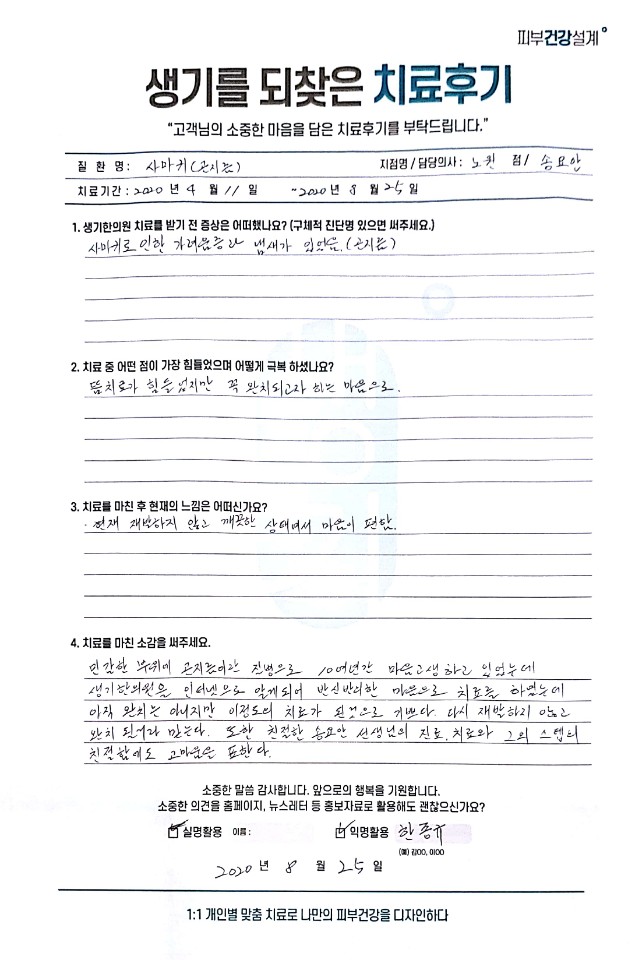 피부건강설계
생기를 되찾은 치료후기
"고객님의 소중한 마음을 담은 치료후기를 부탁드립니다."
질 환 명 : 사마귀(곤지름) 지점명 / 담당의사 : 노원 점/ 송요안
치료기간 : 2020 년 4 월 11 일 ~2020 년 8 월 25 일
1. 생기한의원 치료를 받기 전 증상은 어떠했나요? (구체적 진단명 있으면 써주세요.)
사마귀로 인한 가려움증과 냄새가 있었음.(곤지름)
2. 치료 중 어떤 점이 가장 힘들었으며 어떻게 극복 하셨나요?
뜸치료가 힘들었지만 꼭 완치되고자 하는 마음으로.
3. 치료를 마친 후 현재의 느낌은 어떠신가요?
· 현재 재발하지 않고 깨끗한 상태여서 마음이 편함.
4. 치료를 마친 소감을 써주세요.
민감한 부위에 곤지름이란 질병으로 10여년간 마음고생하고 있었는데
생기한의원을 인터넷으로 알게되어 반신반의한 마음으로 치료를 하였는데
아직 완치는 아니지만 이정도의 치료가 된것으로 기쁘다. 다시 재발하지 않고
완치 된거라 믿는다. 또한 친절한 송요안 선생님의 진료, 치료와 그의 스텝의
친절함에도 고마움을 표한다.
소중한 말씀 감사합니다. 앞으로의 행복을 기원합니다.
소중한 의견을 홈페이지, 뉴스레터 등 홍보자료로 활용해도 괜찮으신가요?
실명활용 이름 : 익명활용 한종규
(예) 김OO, 이OO
2020 년 8 월 25 일
1:1 개인별 맞춤 치료로 나만의 피부건강을 디자인하다